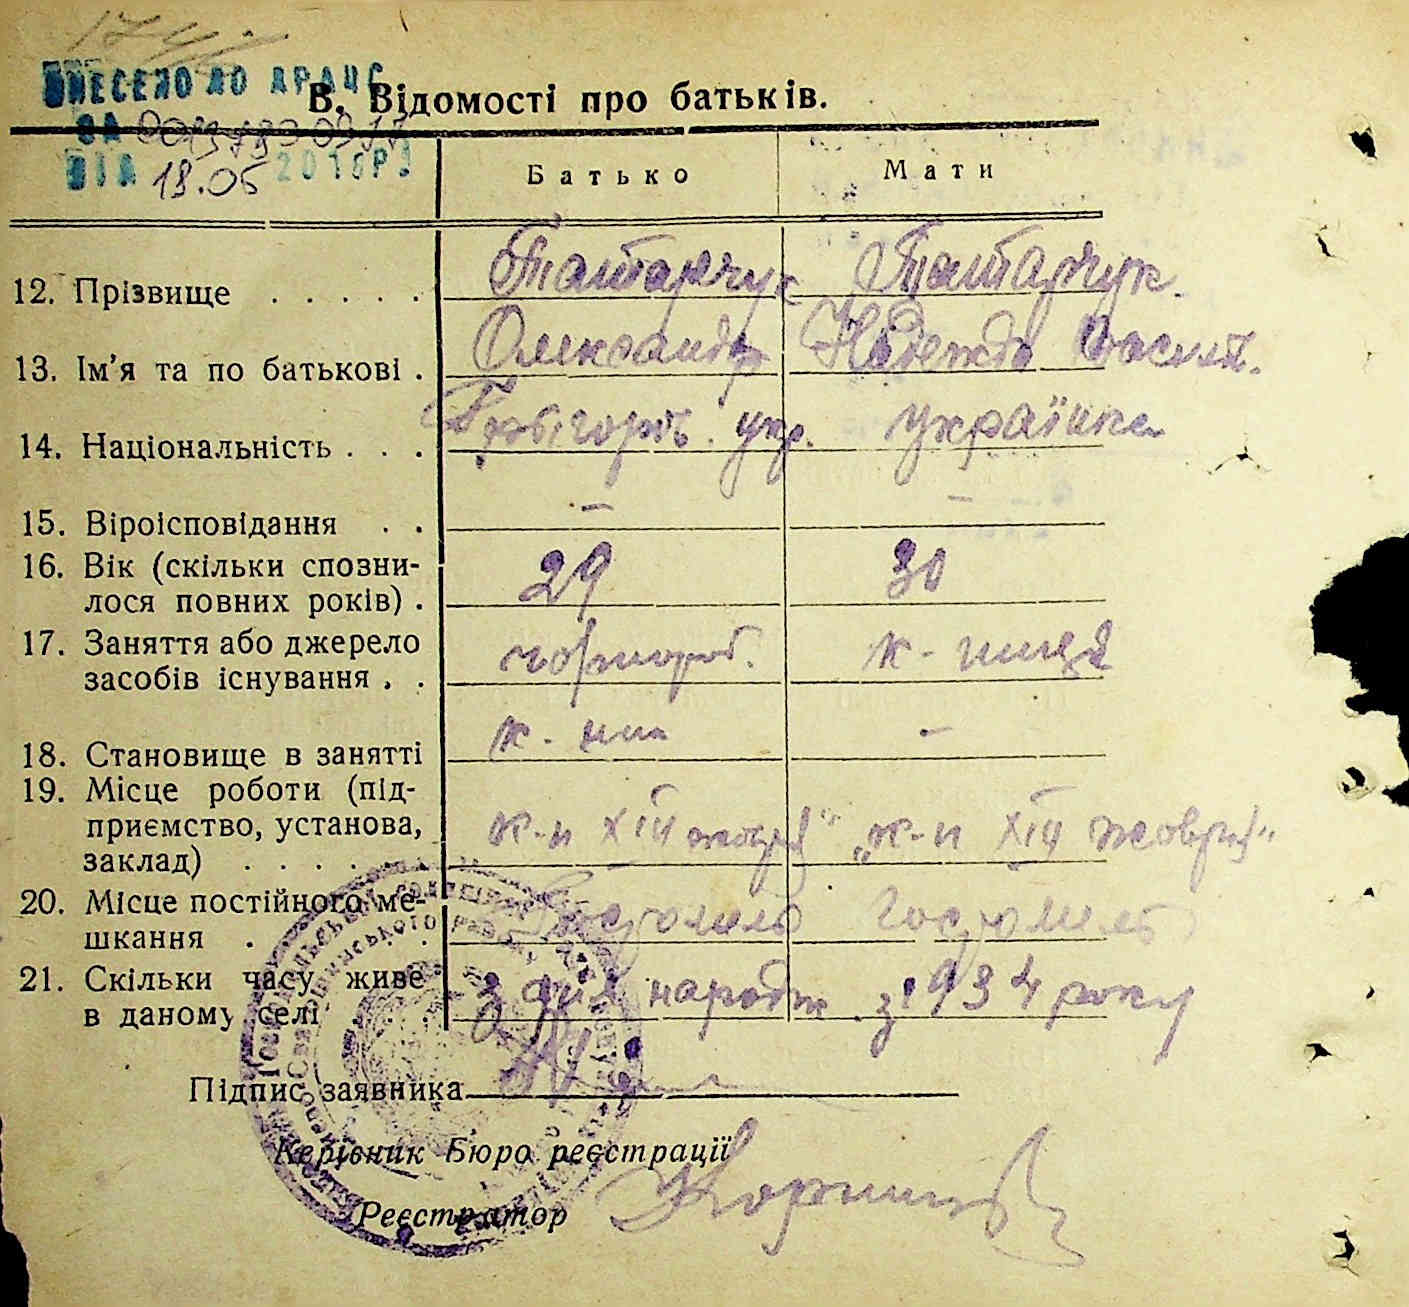 ВНЕСЕНО ДО ДРАЦС
В. Відомості про батьків.
ЗА
ВІД 18.05 2016Р.
Батько Мати
12. Прізвище . . . . . Татарчук Татарчук.
13. Ім'я та по батькові . Олександр Надежда Василів.
14. Національність . . . укр. українка
15. Віроісповідання . . – –
16. Вік (скільки спозни-
лося повних років) . 29 30
17. Заняття або джерело
засобів існування . . чорнороб. к-ниця
18. Становище в занятті к-ник –
19. Місце роботи (під-
приємство, установа,
заклад) . . . . . . к-п XIII жовтня" „к-п XIII жовтня"
20. Місце постійного ме-
шкання . . . . Гостомель Гостомель
21. Скільки часу живе
в даному селі З дня народж. з 1934 року
Підпис заявника
Керівник Бюро реєстрації
Реєстратор